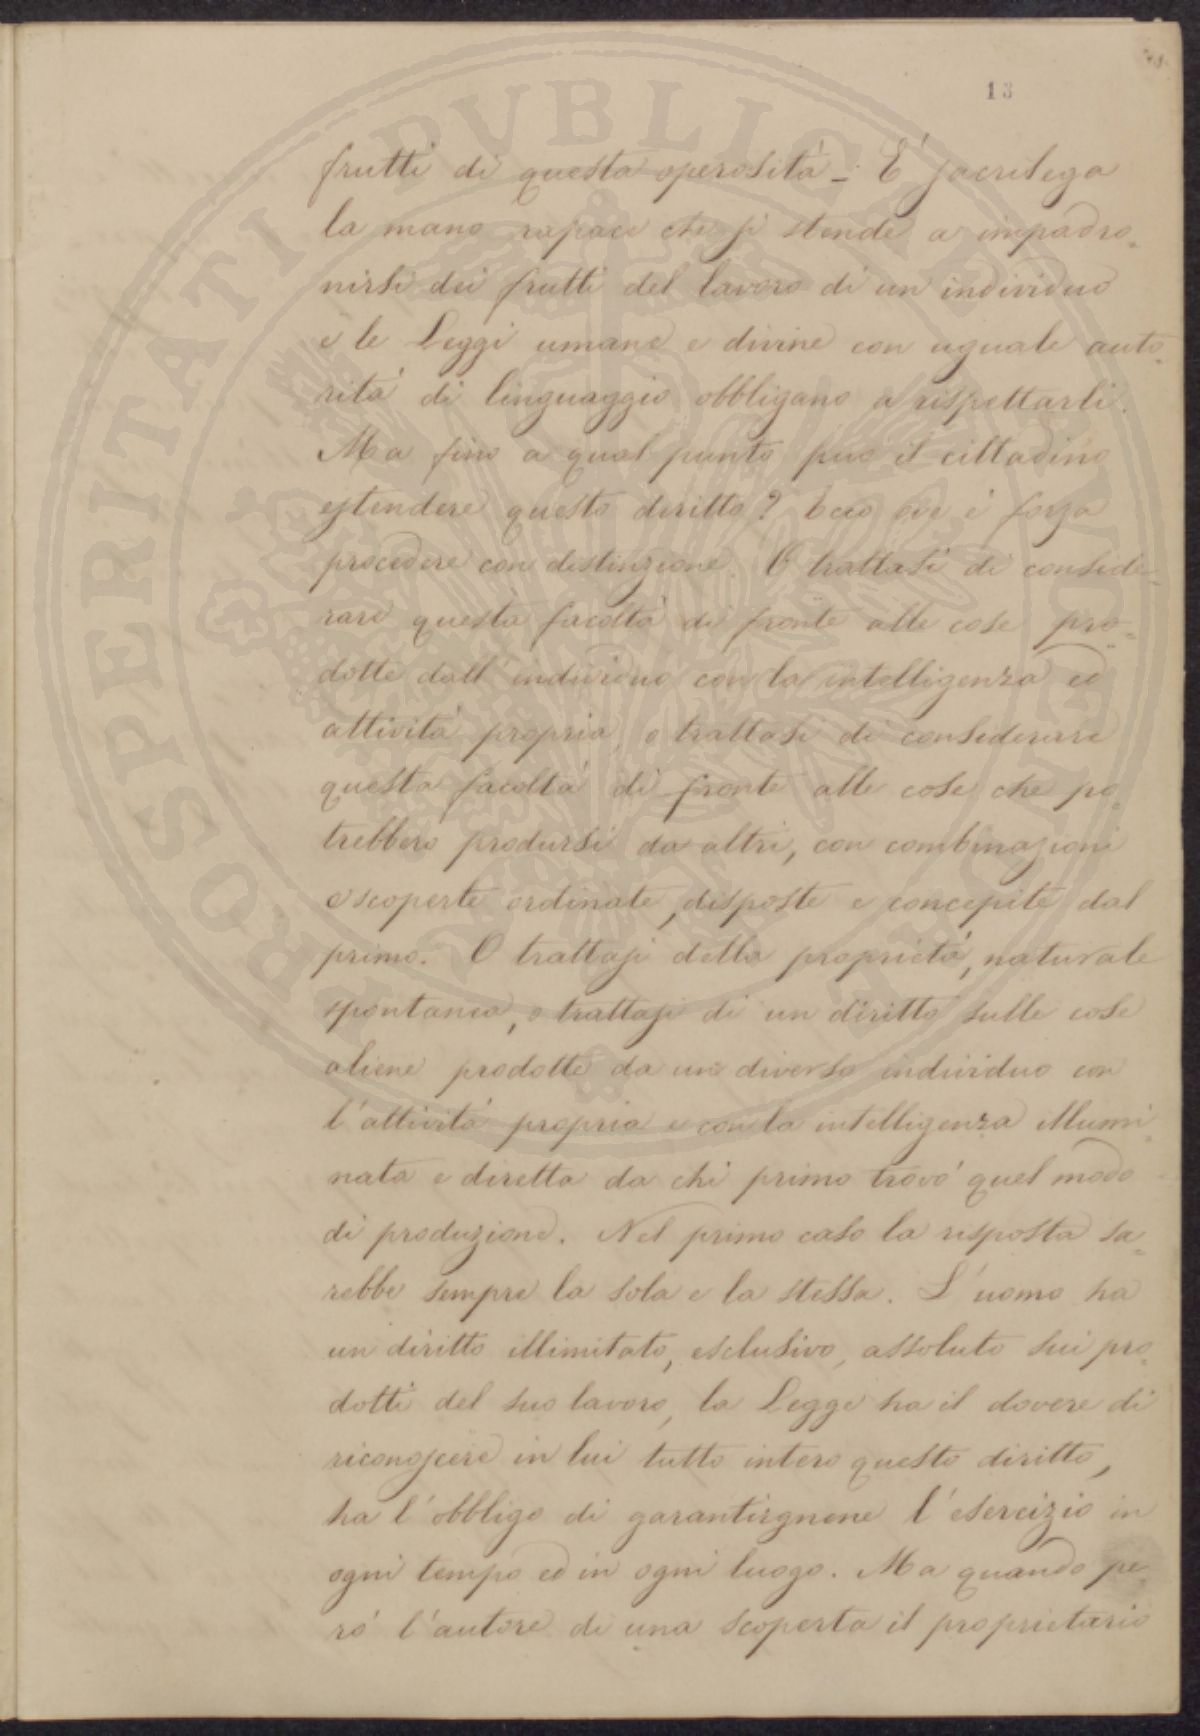 13
frutti di questa operosità – È sacrilega
la mano rapace che si stende a impadro-
nirsi dei frutti del lavoro di un individuo
e le Leggi umane e divine con uguale auto-
rità di linguaggio obbligano a rispettarli.
Ma fino a qual punto può il cittadino
estendere questo diritto? Ecco ove è forza
procedere con distinzione. O trattasi di conside-
rare questa facoltà di fronte alle cose pro-
dotte dall'individuo con la intelligenza ed
attività propria, o trattasi di considerare
questa facoltà di fronte alle cose che po-
trebbero prodursi da altri, con combinazioni
e scoperte ordinate, disposte e concepite dal
primo. O trattasi della proprietà, naturale
spontanea, o trattasi di un diritto sulle cose
aliene prodotte da un diverso individuo con
l'attività propria e con la intelligenza illumi-
nata e diretta da chi primo trovò quel modo
di produzione. Nel primo caso la risposta sa-
rebbe sempre la sola e la stessa. L'uomo ha
un diritto illimitato, esclusivo, assoluto sui pro-
dotti del suo lavoro, la Legge ha il dovere di
riconoscere in lui tutto intero questo diritto,
ha l'obbligo di garantirgnene l'esercizio in
ogni tempo ed in ogni luogo. Ma quando pe-
rò l'autore di una scoperta il proprietario
PROSPERITATI PVBLICAE AVGENDAE